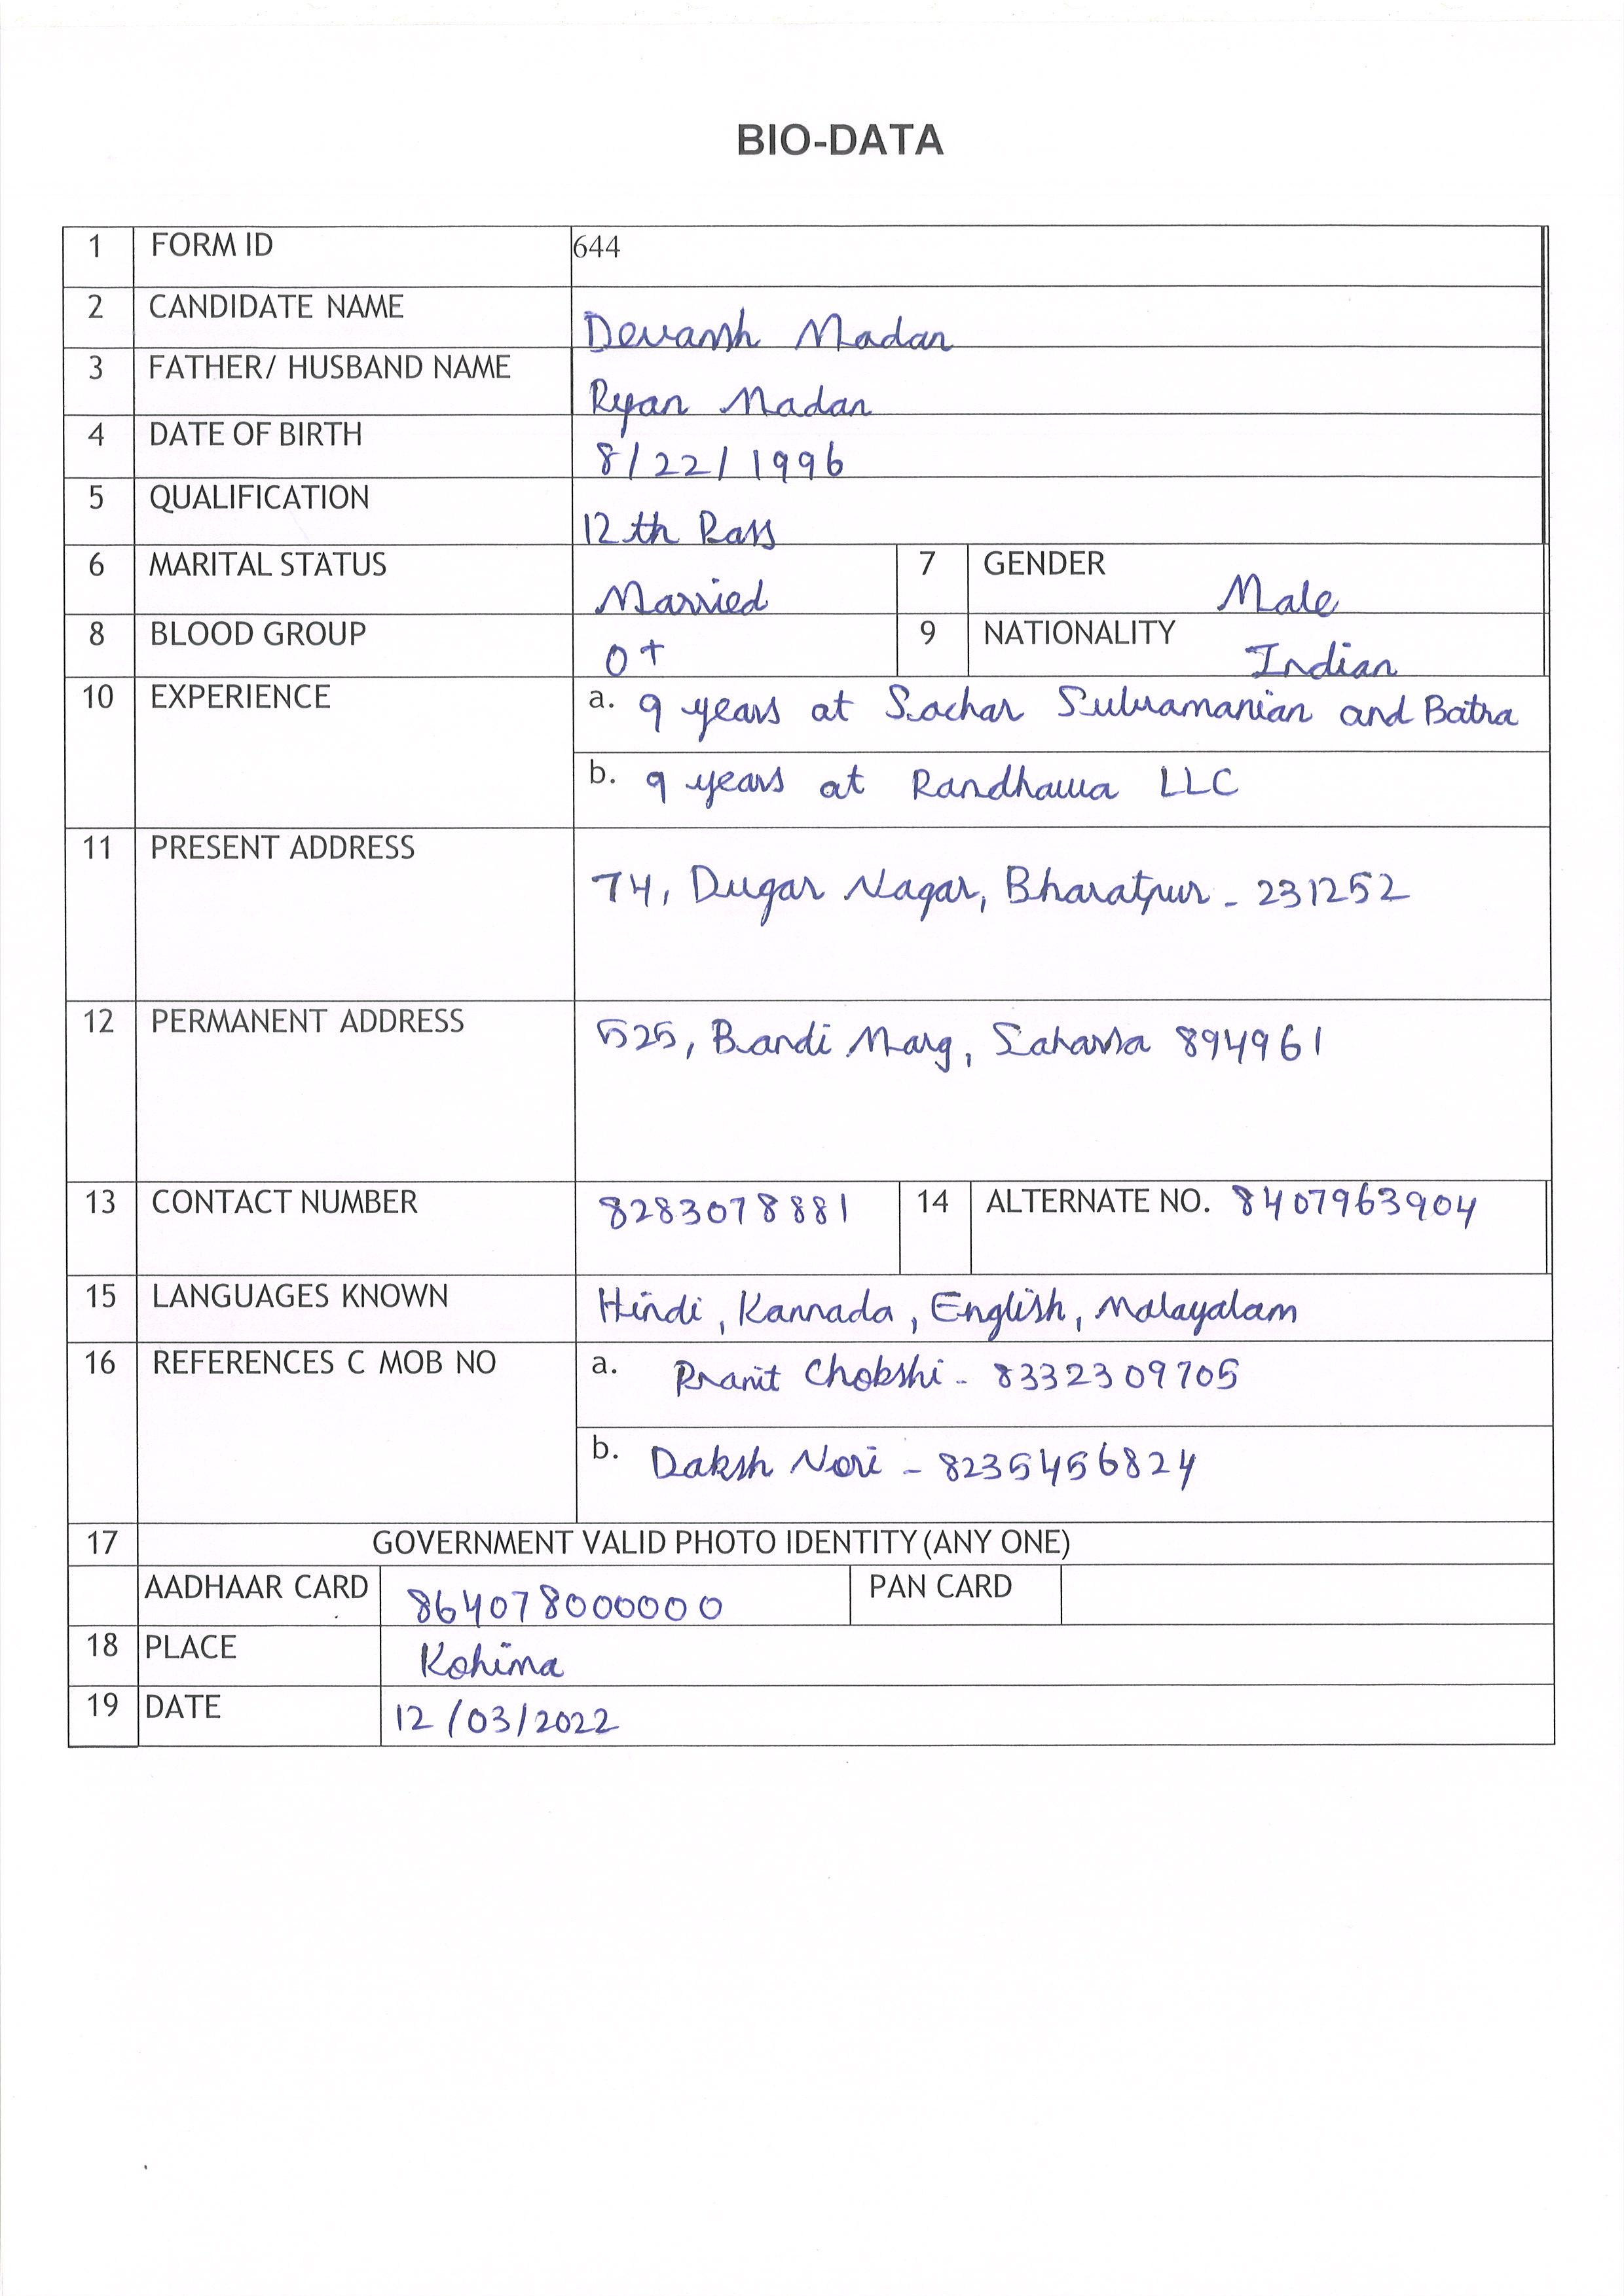 BIO-DATA
1 FORM ID 644
2 CANDIDATE NAME Devansh Madan
3 FATHER/ HUSBAND NAME Ryan Madan
4 DATE OF BIRTH 8/22/1996
5 QUALIFICATION 12th Pass
6 MARITAL STATUS Married 7 GENDER Male
8 BLOOD GROUP O+ 9 NATIONALITY Indian
10 EXPERIENCE a. 9 years at Sachar Subramanian and Batra
b. 9 years at Randhawa LLC
11 PRESENT ADDRESS 74, Dugar Nagar, Bharatpur - 231252
12 PERMANENT ADDRESS 525, Bandi Marg, Saharsa 894961
13 CONTACT NUMBER 8283078881 14 ALTERNATE NO. 8407963904
15 LANGUAGES KNOWN Hindi, Kannada, English, Malayalam
16 REFERENCES C MOB NO a. Pranit Chokshi - 8332309705
b. Daksh Nori - 8235456824
17 GOVERNMENT VALID PHOTO IDENTITY (ANY ONE)
AADHAAR CARD 864078000000 PAN CARD
18 PLACE Kohima
19 DATE 12/03/2022